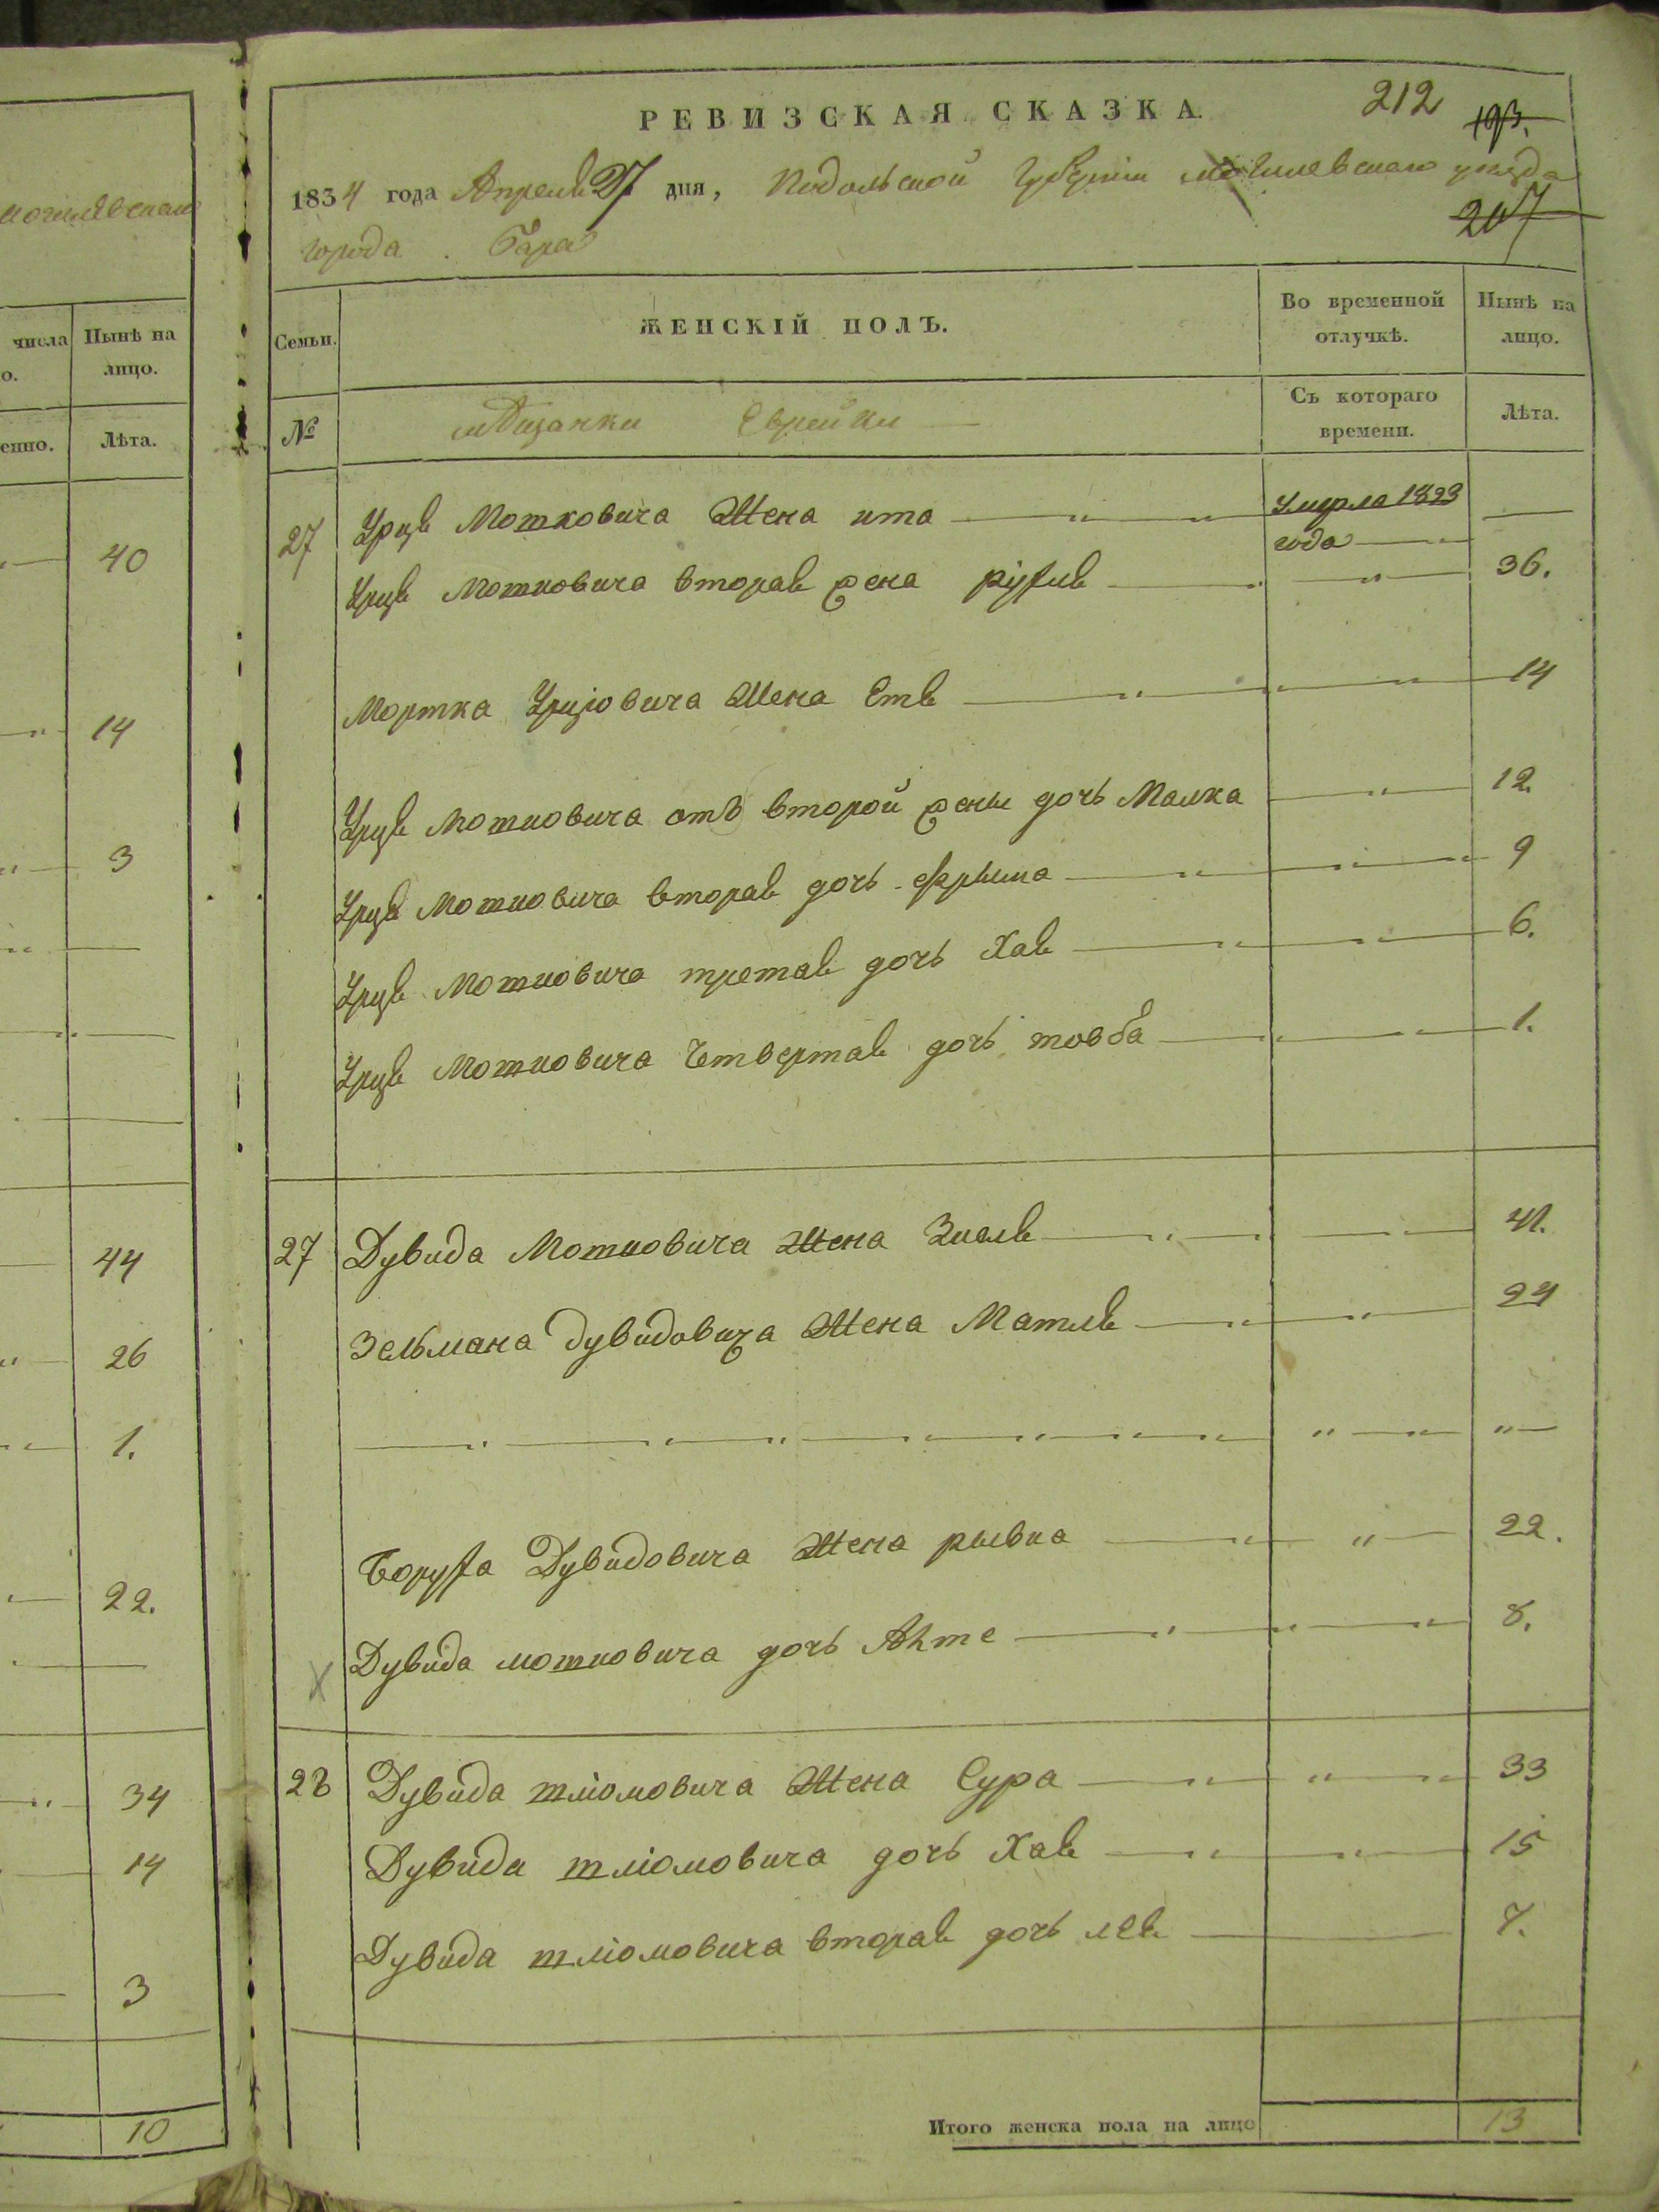 могилевскаго
числа Нынѣ на
о. лицо.
енно. Лѣта.
40
14
3
44
26
1.
22.
34
14
3
10
212 193.
РЕВИЗСКАЯ СКАЗКА.
1834 года Апреля 27 дня, Подольской Губернии могилевскаго уезда
207
города Бара
Семьи. ЖЕНСКІЙ ПОЛЪ. Во временной отлучкѣ. Нынѣ на лицо.
№ мещанки Еврейки Съ котораго времени. Лѣта.
27 Урця Мошковича Жена ита — " — " Умерла 1823 года —
Урця Мошковича вторая жена рухля — " — 36.
Мортка Урціовича Жена Етя — " — " — " — 14
Урця Мошковича отъ второй жены дочь Малка — " — 12.
Урця Мошковича вторая дочь фрыма — " — " — 9
Урця Мошковича третая дочь Хая — " — " — 6.
Урця Мошковича Четвертая дочь товба — " — " — 1.
27 Дувида Мошковича Жена Зисля — " — " — " — 41.
Зельмана Дувидовича Жена Матля — " — " — 24
— " — " — " — " — " — " — " — " — " — " —
Боруха Дувидовича Жена рывка — " — " — 22.
X Дувида мошковича дочь Яhте — " — " — " — 8.
28 Дувида шліомовича Жена Сура — " — " — " — 33
Дувида шліомовича дочь Хая — " — " — 15
Дувида шліомовича вторая дочь лея — 7.
Итого женска пола на лицо 13